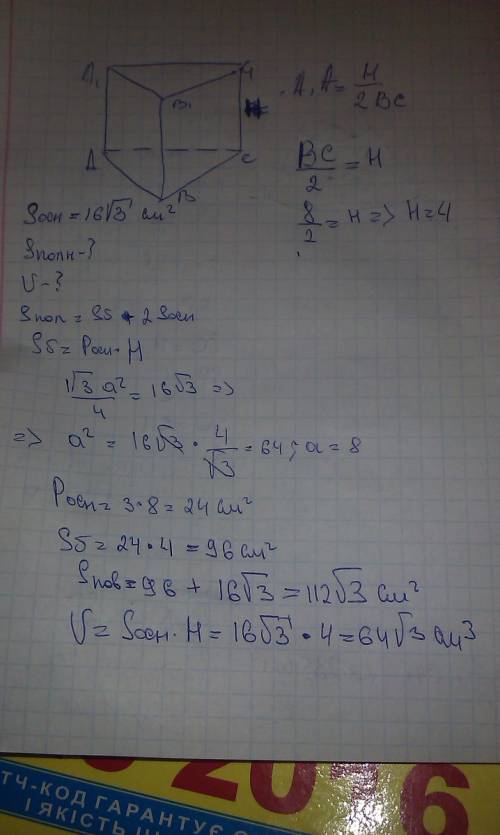 A₁
C₁
B₁
A
C
B
A₁A = H / 2BC
BC / 2 = H
8 / 2 = H => H = 4
Sосн = 16√3 см²
Sполн - ?
V - ?
Sпол = Sб + 2 Sосн
Sб = Pосн · H
√3 a² / 4 = 16√3 =>
=> a² = 16√3 · 4 / √3 = 64; a = 8
Pосн = 3 · 8 = 24 см²
Sб = 24 · 4 = 96 см²
Sпов = 96 + 16√3 = 112√3 см²
V = Sосн · H = 16√3 · 4 = 64√3 см³
2016
ТЧ-КОД ГАРАНТУЄ
І ЯКІСТЬ